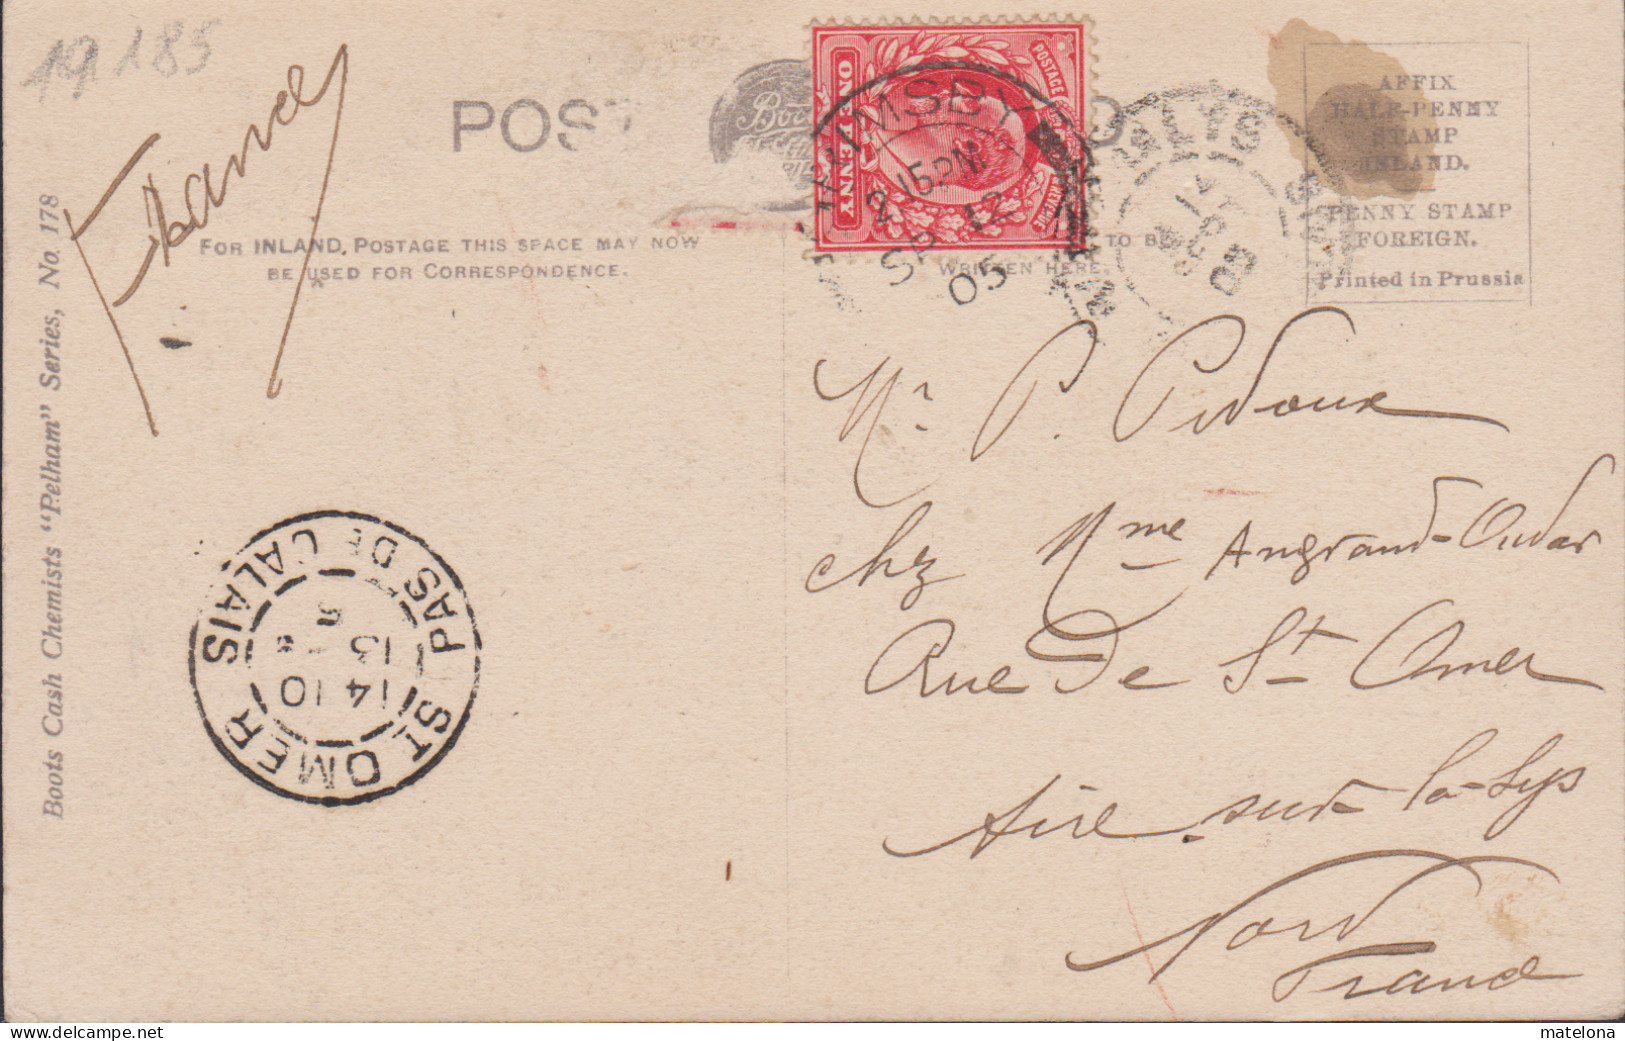 19185
POST
Boots
FOR INLAND POSTAGE THIS SPACE MAY NOW
BE USED FOR CORRESPONDENCE.
TO BE
WRITTEN HERE.
AFFIX
HALF-PENNY
STAMP
INLAND.
PENNY STAMP
FOREIGN.
Printed in Prussia
POSTAGE
& REVENUE
ONE PENNY
GRIMSBY
2 15 PM
SP 12
05
Boots Cash Chemists "Pelham" Series, No. 178
ST OMER
PAS DE CALAIS
14 10
13
5
Mr P. Pidoux
chz Mme Angrand-Oudar
Rue De St Omer
Aire-sur-la-Lys
Nord
France
matelona